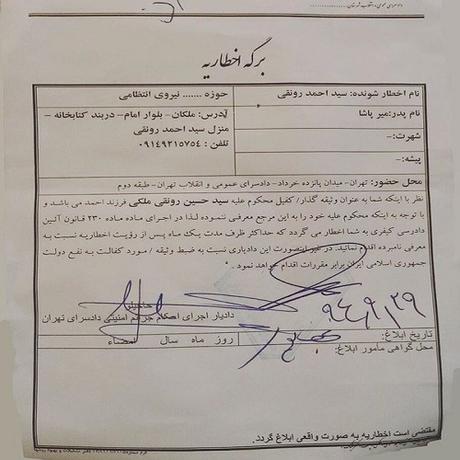 برگه اخطاریه
نام اخطار شونده: سید احمد رونقی
حوزه ....... نیروی انتظامی
نام پدر:میر پاشا
آدرس: ملکان- بلوار امام- دربند کتابخانه -
شهرت:-
منزل سید احمد رونقی
پیشه:-
تلفن : ۰۹۱۴۹۲۱۵۷۵۴
محل حضور: تهران- میدان پانزده خرداد- دادسرای عمومی و انقلاب تهران- طبقه دوم
نظر با اینکه شما به عنوان وثیقه گذار/ کفیل محکوم علیه سید حسین رونقی ملکی فرزند احمد می باشد و
با توجه به اینکه محکوم علیه خود را به این مرجع معرفی ننموده لذا در اجرای ماده ماده ۲۳۰ قانون آئین
دادرسی کیفری به شما اخطار می گردد که حداکثر ظرف مدت یک ماه پس از رؤیت اخطاریه نسبت به
معرفی نامبرده اقدام نمائید. در غیر اینصورت این دادیاری نسبت به ضبط وثیقه / مورد کفالت به نفع دولت
جمهوری اسلامی ایران برابر مقررات اقدام خواهد نمود .
۹۴,۹,۲۹
دادیار اجرای احکام جرائم امنیتی دادسرای تهران
تاریخ ابلاغ: روز ماه سال امضاء
محل گواهی مامور ابلاغ:
مقتضی است اخطاریه به صورت واقعی ابلاغ گردد.